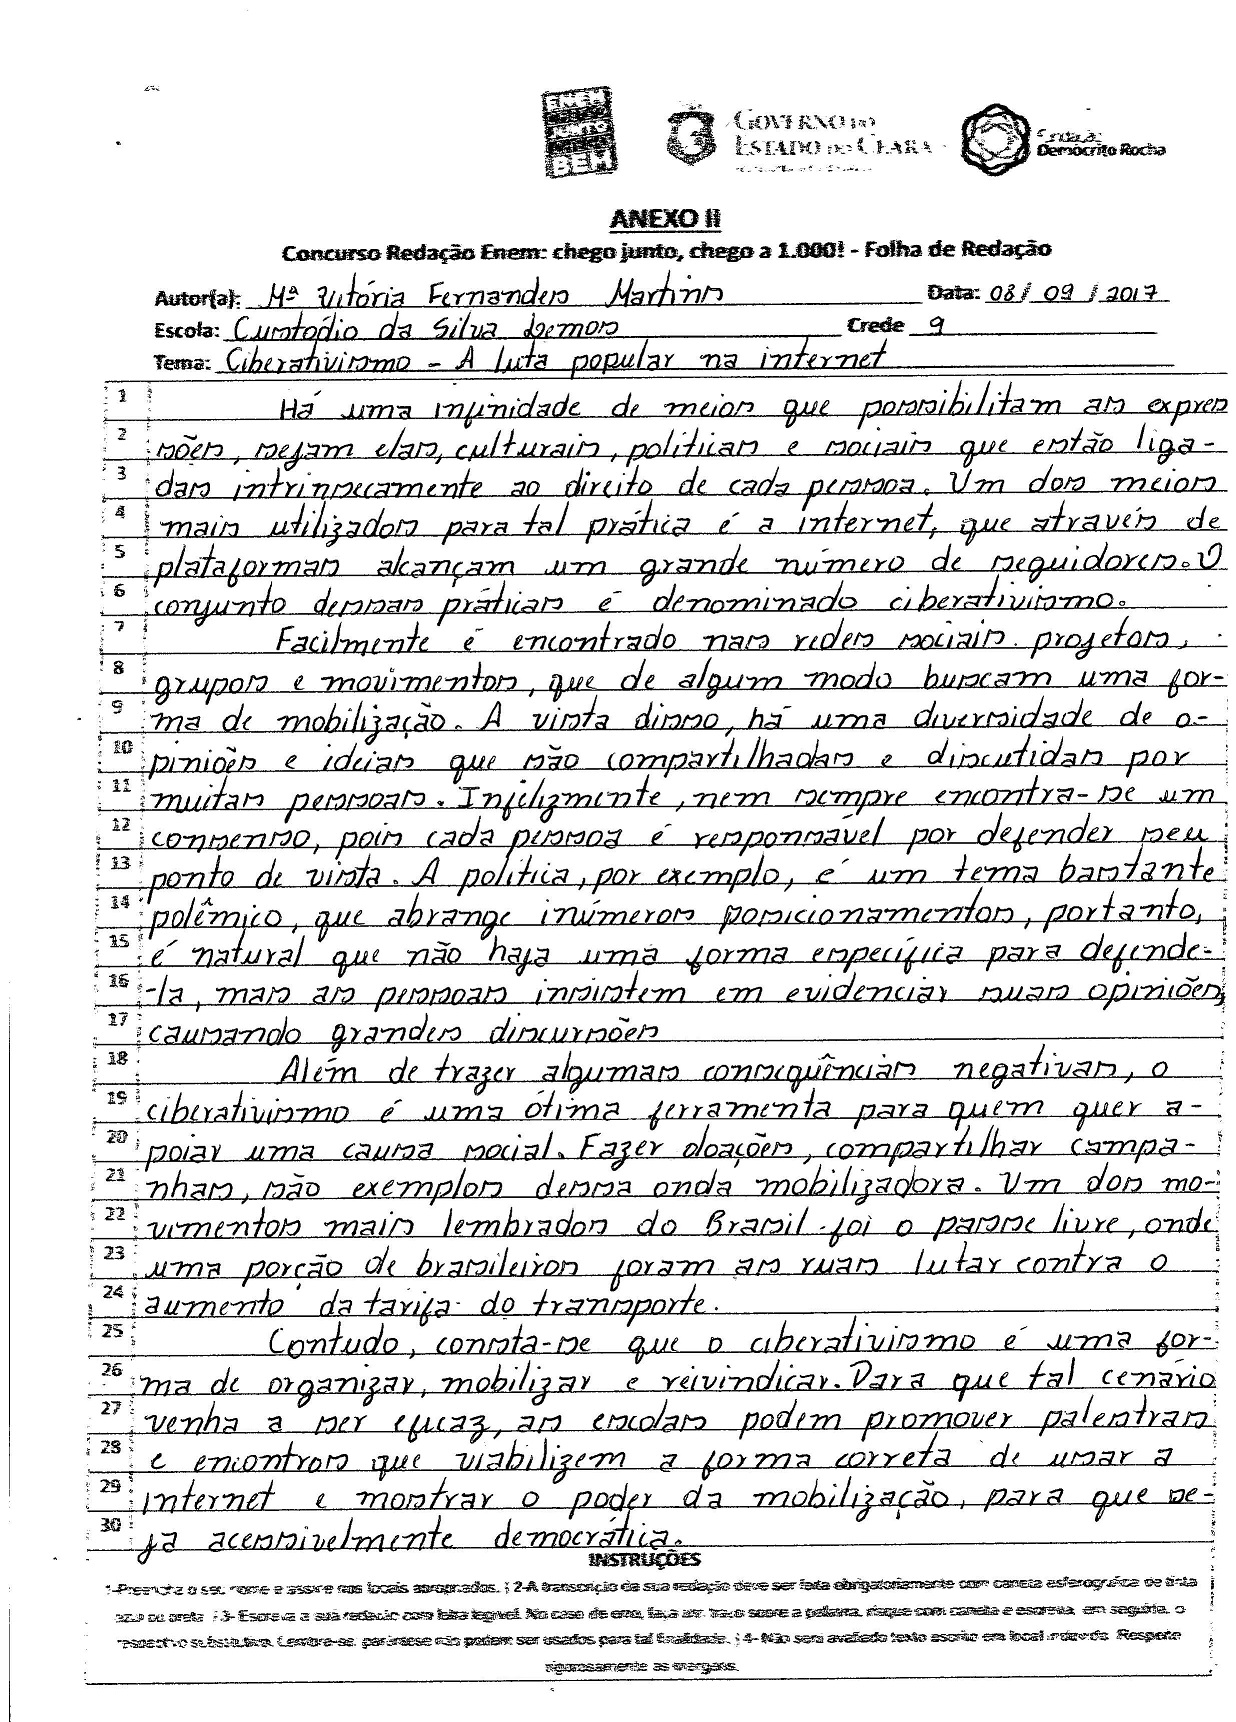 ENEM
CHEGO
JUNTO
BEM
GOVERNO DO
ESTADO DO CEARÁ
Demócrito Rocha
ANEXO II
Concurso Redação Enem: chego junto, chego a 1.000! - Folha de Redação
Autor(a): Mª Vitória Fernandes Martins Data: 08/ 09 / 2017
Escola: Custódio da Silva Lemos Crede 9
Tema: Ciberativismo - A luta popular na internet
1 Há uma infinidade de meios que possibilitam as expres
2 sões, sejam elas, culturais, políticas e sociais que estão liga-
3 das intrinsecamente ao direito de cada pessoa. Um dos meios
4 mais utilizados para tal prática é a internet, que através de
5 plataformas alcançam um grande número de seguidores. O
6 conjunto dessas práticas é denominado ciberativismo.
7 Facilmente é encontrado nas redes sociais projetos,
8 grupos e movimentos, que de algum modo buscam uma for-
9 ma de mobilização. A vista disso, há uma diversidade de o-
10 piniões e ideias que são compartilhadas e discutidas por
11 muitas pessoas. Infelizmente, nem sempre encontra-se um
12 consenso, pois cada pessoa é responsável por defender seu
13 ponto de vista. A política, por exemplo, é um tema bastante
14 polêmico, que abrange inúmeros posicionamentos, portanto,
15 é natural que não haja uma forma específica para defende-
16 -la, mas as pessoas insistem em evidenciar suas opiniões,
17 causando grandes discursões
18 Além de trazer algumas consequências negativas, o
19 ciberativismo é uma ótima ferramenta para quem quer a-
20 poiar uma causa social. Fazer doações, compartilhar campa-
21 nhas, são exemplos dessa onda mobilizadora. Um dos mo-
22 vimentos mais lembrados do Brasil foi o passe livre, onde
23 uma porção de brasileiros foram as ruas lutar contra o
24 aumento da tarifa do transporte.
25 Contudo, consta-se que o ciberativismo é uma for-
26 ma de organizar, mobilizar e reivindicar. Para que tal cenário
27 venha a ser eficaz, as escolas podem promover palestras
28 e encontros que viabilizem a forma correta de usar a
29 internet e mostrar o poder da mobilização, para que se-
30 ja acessivelmente democrática.
INSTRUÇÕES
1-Preencha o seu nome e assine nos locais apropriados. | 2-A transcrição da sua redação deve ser feita obrigatoriamente com caneta esferográfica de tinta
azul ou preta | 3- Escreva a sua redação com letra legível. No caso de erro, faça um traço sobre a palavra, risque com caneta e escreva, em seguida, o
respectivo substitutivo. Lembre-se, parêntese não podem ser usados para tal finalidade. | 4- Não será avaliado texto escrito em local indevido. Respeite
rigorosamente as margens.